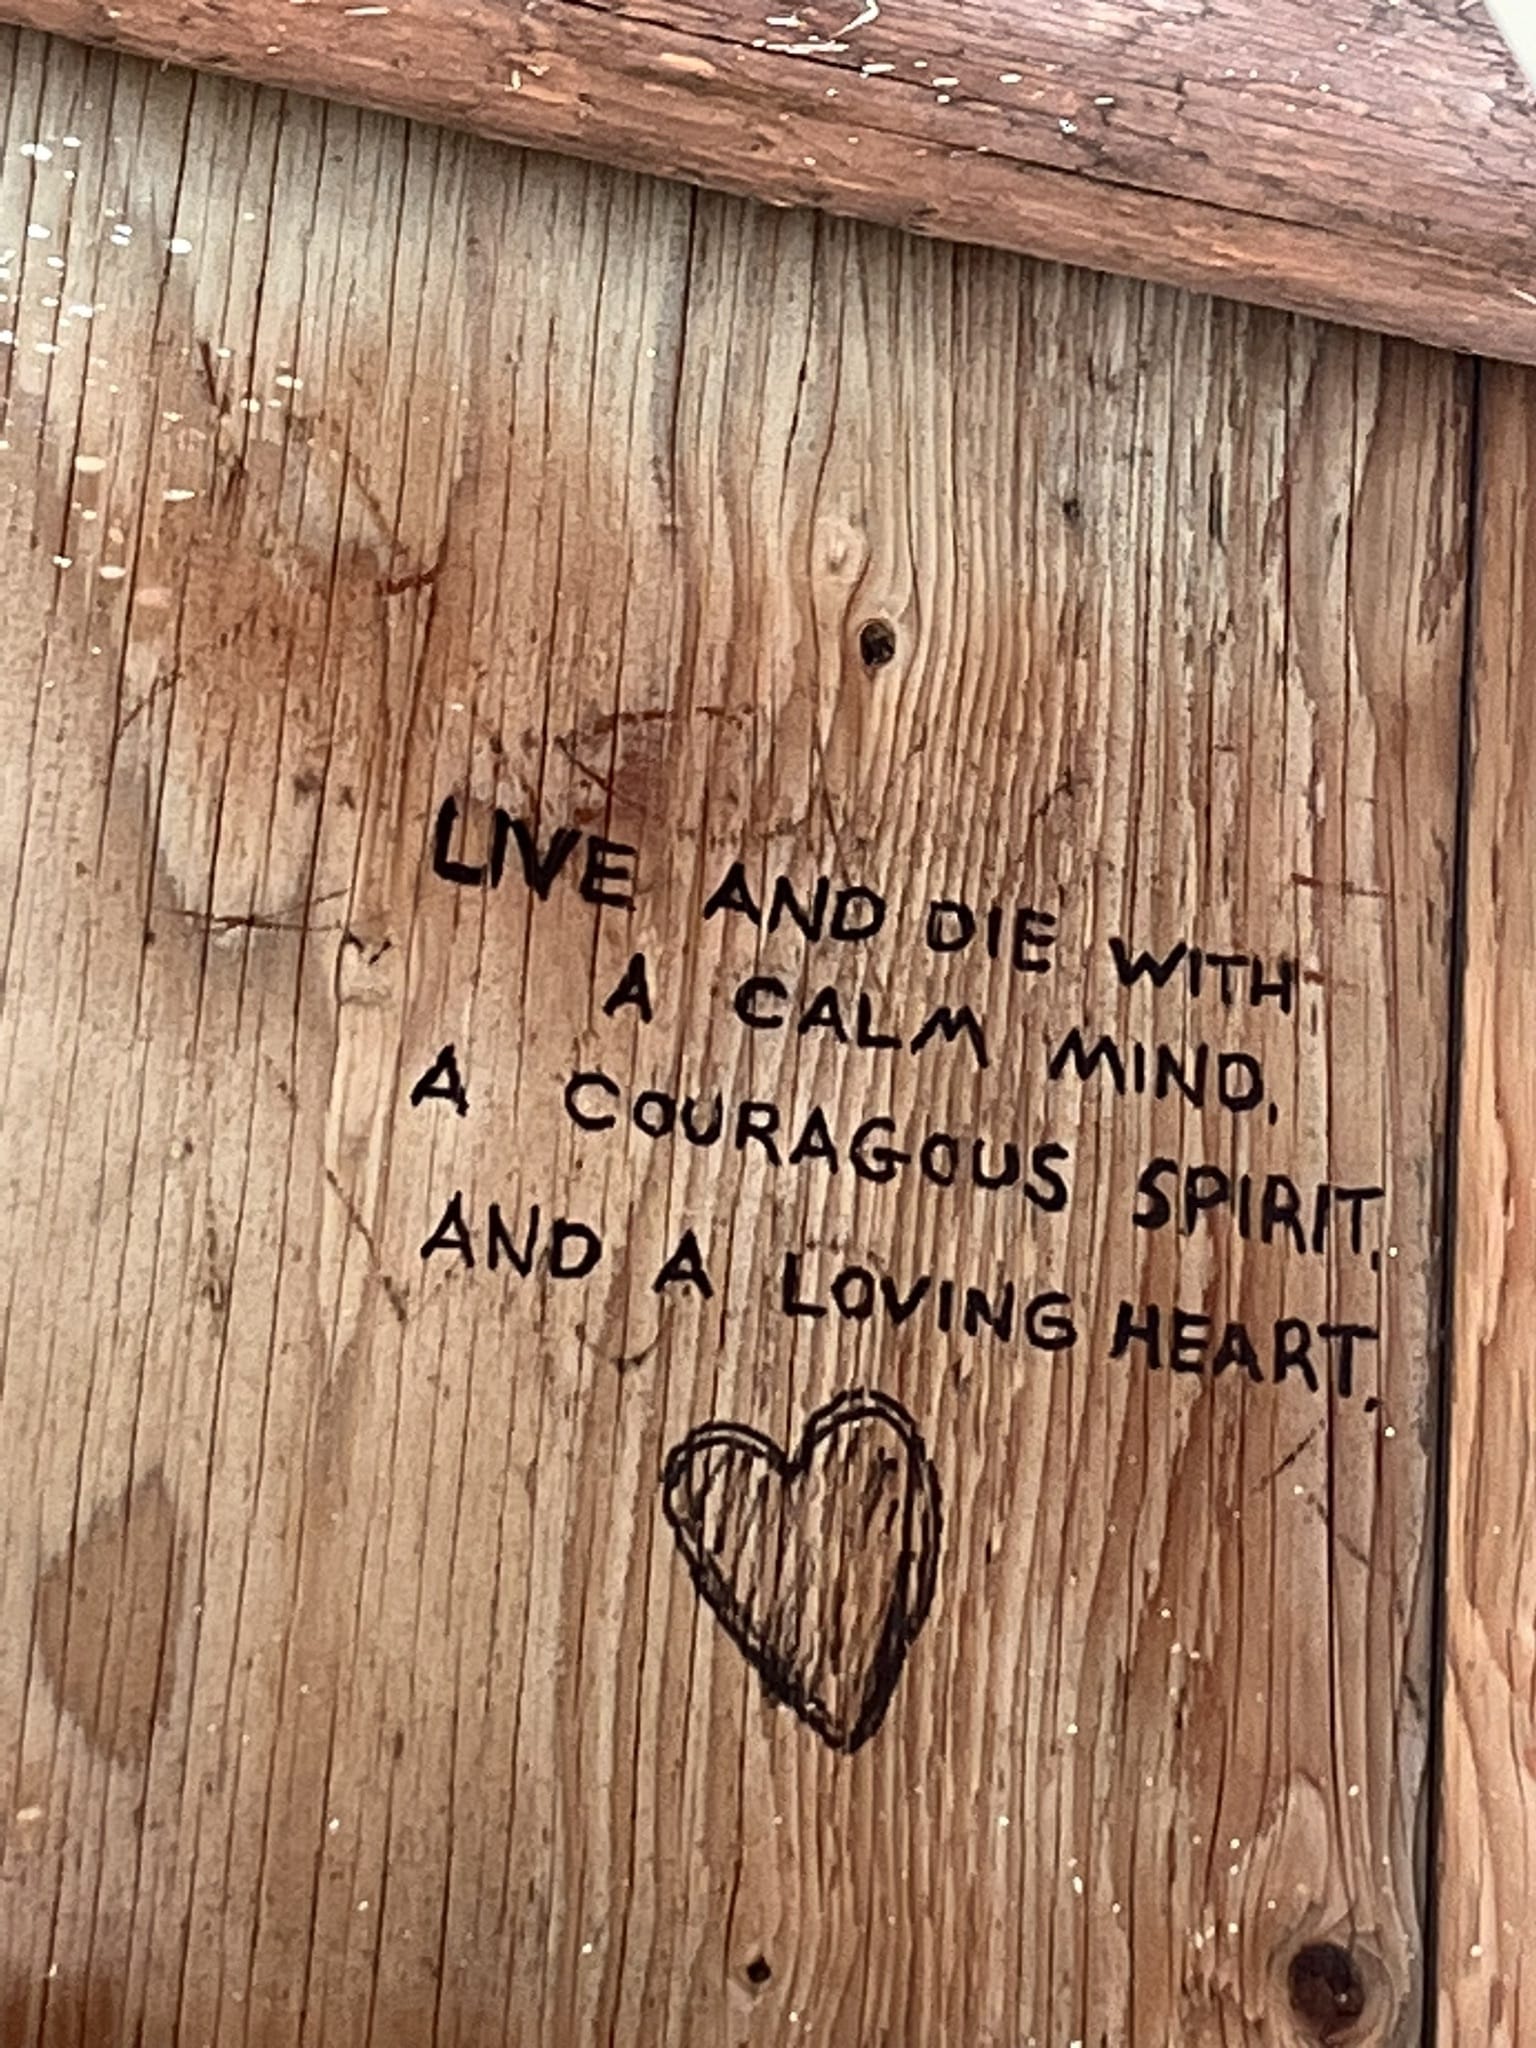 LIVE AND DIE WITH
A CALM MIND,
A COURAGOUS SPIRIT,
AND A LOVING HEART.